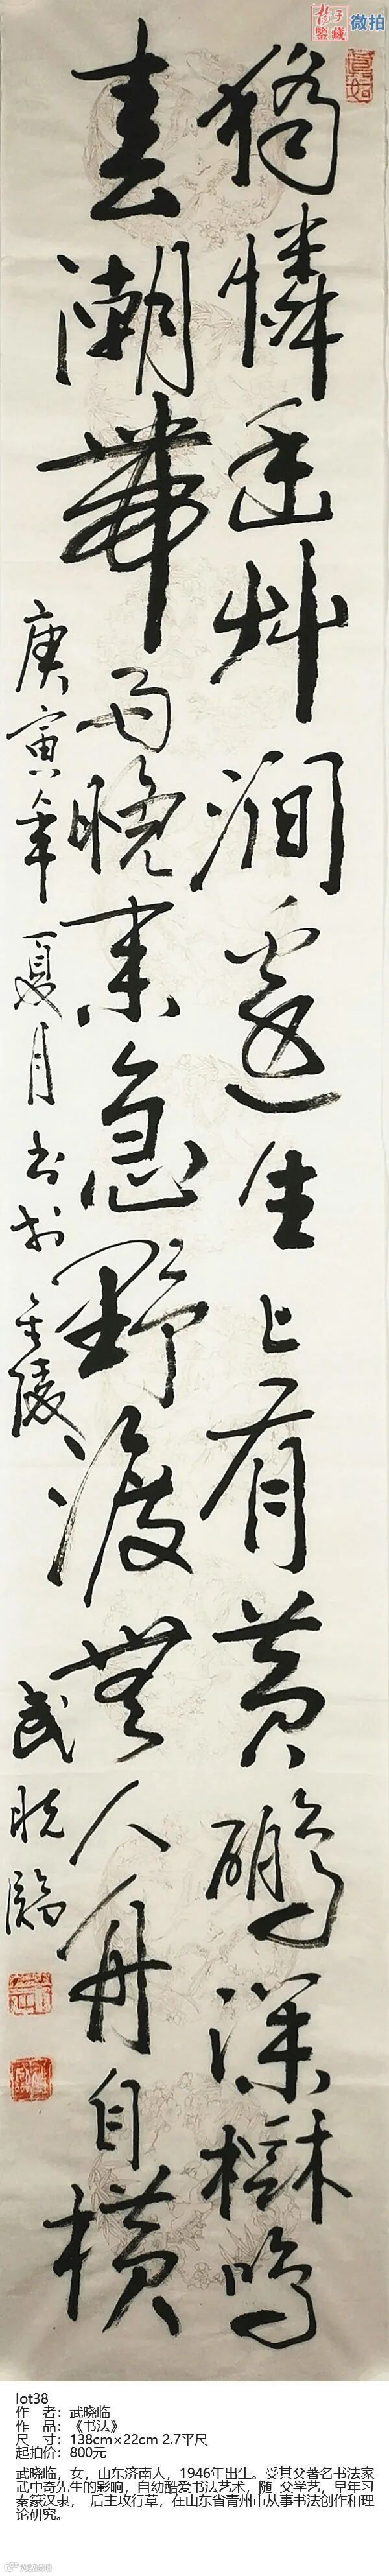 楊子鑒藏
微拍
獨憐幽艸澗邊生上有黄鸝深樹鳴
春潮帶雨晚來急野渡無人舟自橫
庚寅年夏月书於金陵 武晓臨
lot38
作 者：武晓临
作 品：《书法》
尺 寸：138cm×22cm 2.7平尺
起拍价：800元
武晓临，女，山东济南人，1946年出生。受其父著名书法家
武中奇先生的影响，自幼酷爱书法艺术，随 父学艺，早年习
秦篆汉隶， 后主攻行草，在山东省青州市从事书法创作和理
论研究。